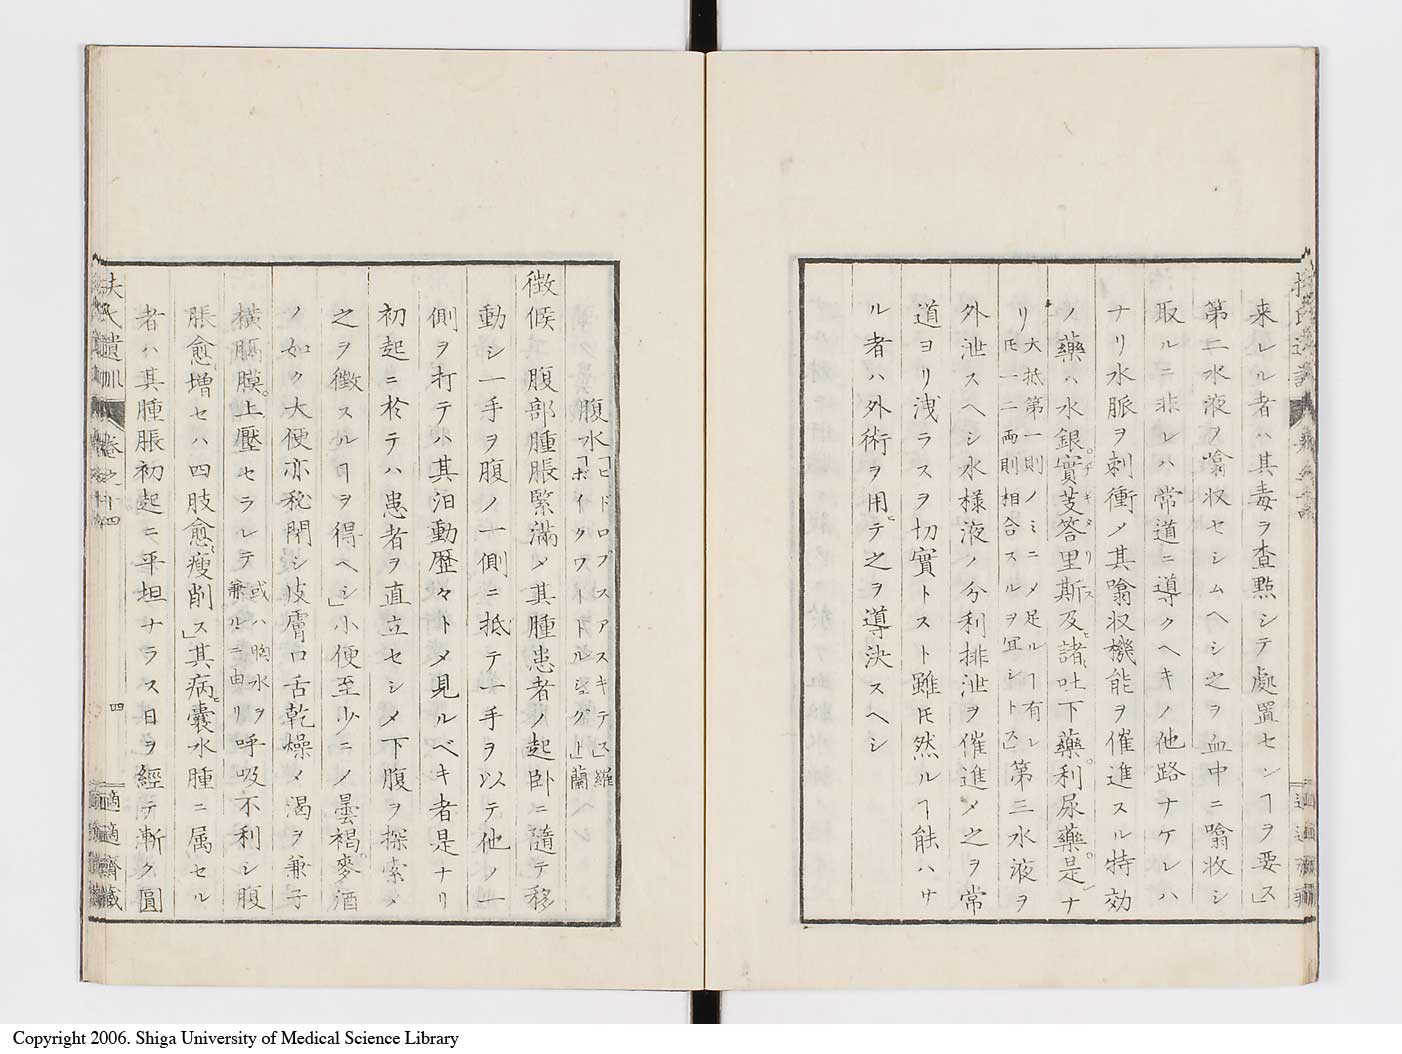 来レル者ハ其毒ヲ査點シテ處置センヿヲ要ス」
第二水液ヲ噏収セシムヘシ之ヲ血中ニ噏收シ
取ルニ非レハ常道ニ導クヘキノ他路ナケレハ
ナリ水脈ヲ刺衝メ其噏収機能ヲ催進スル特効
ノ藥ハ水銀。實芰答里斯及諸吐下藥。利尿藥。是ナ
リ大抵第一則ノミニメ足ルヿ有レ
𪜈一二両則相合スルヲ冝シトス」第三水液ヲ
外泄スヘシ水様液ノ分利排泄ヲ催進メ之ヲ常
道ヨリ洩ラスヲ切實トスト雖𪜈然ルヿ能ハサ
ル者ハ外術ヲ用テ之ヲ導決スヘシ
腹水「ヒドロプスアスキテス」羅
「ボイクワートルシュグト」蘭
徴候腹部腫脹緊滿メ其腫患者ノ起臥ニ隨テ移
動シ一手ヲ腹ノ一側ニ抵テ一手ヲ以テ他ノ一
側ヲ打テハ其泊動歴々トメ見ルベキ者是ナリ
初起ニ於テハ患者ヲ直立セシメ下腹ヲ探索メ
之ヲ徴スルヿヲ得ヘシ」小便至少ニノ曇褐麥酒
ノ如ク大便亦秘閉シ皮膚口舌乾燥メ渇ヲ兼子
横膈膜。上壓セラレテ或ハ胸水ヲ
兼ルニ由リ呼吸不利シ腹
脹愈増セハ四肢愈瘦削ス」其病囊水腫ニ属セル
者ハ其腫脹初起ニ平坦ナラス日ヲ經テ漸ク圓
扶氏遺訓 卷之十四 四 適適齋藏